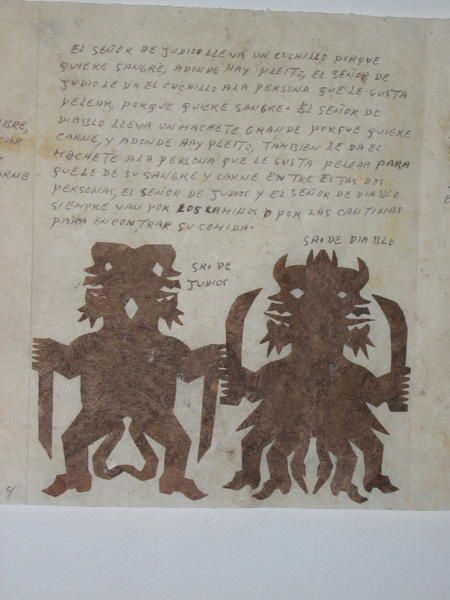 EL SEÑOR DE JUDIO LLEVA UN CUCHILLO PORQUE
QUIERE SANGRE, ADONDE HAY PLEITO, EL SEÑOR DE
JUDIO LE DA EL CUCHILLO A LA PERSONA QUE LE GUSTA
PELEAR, PORQUE QUIERE SANGRE. EL SEÑOR DE
DIABLO LLEVA UN MACHETE GRANDE PORQUE QUIERE
CARNE, Y ADONDE HAY PLEITO, TAMBIEN LE DA EL
MACHETE A LA PERSONA QUE LE GUSTA PELEAR PARA
QUE LE DE SU SANGRE Y CARNE ENTRE ESTAS DOS
PERSONAS, EL SEÑOR DE JUDIOS Y EL SEÑOR DE DIABLO
SIEMPRE VAN POR LOS CAMINOS O POR LAS CANTINAS
PARA ENCONTRAR SU COMIDA.
SR. DE DIABLO
SR. DE
JUDIOS
4